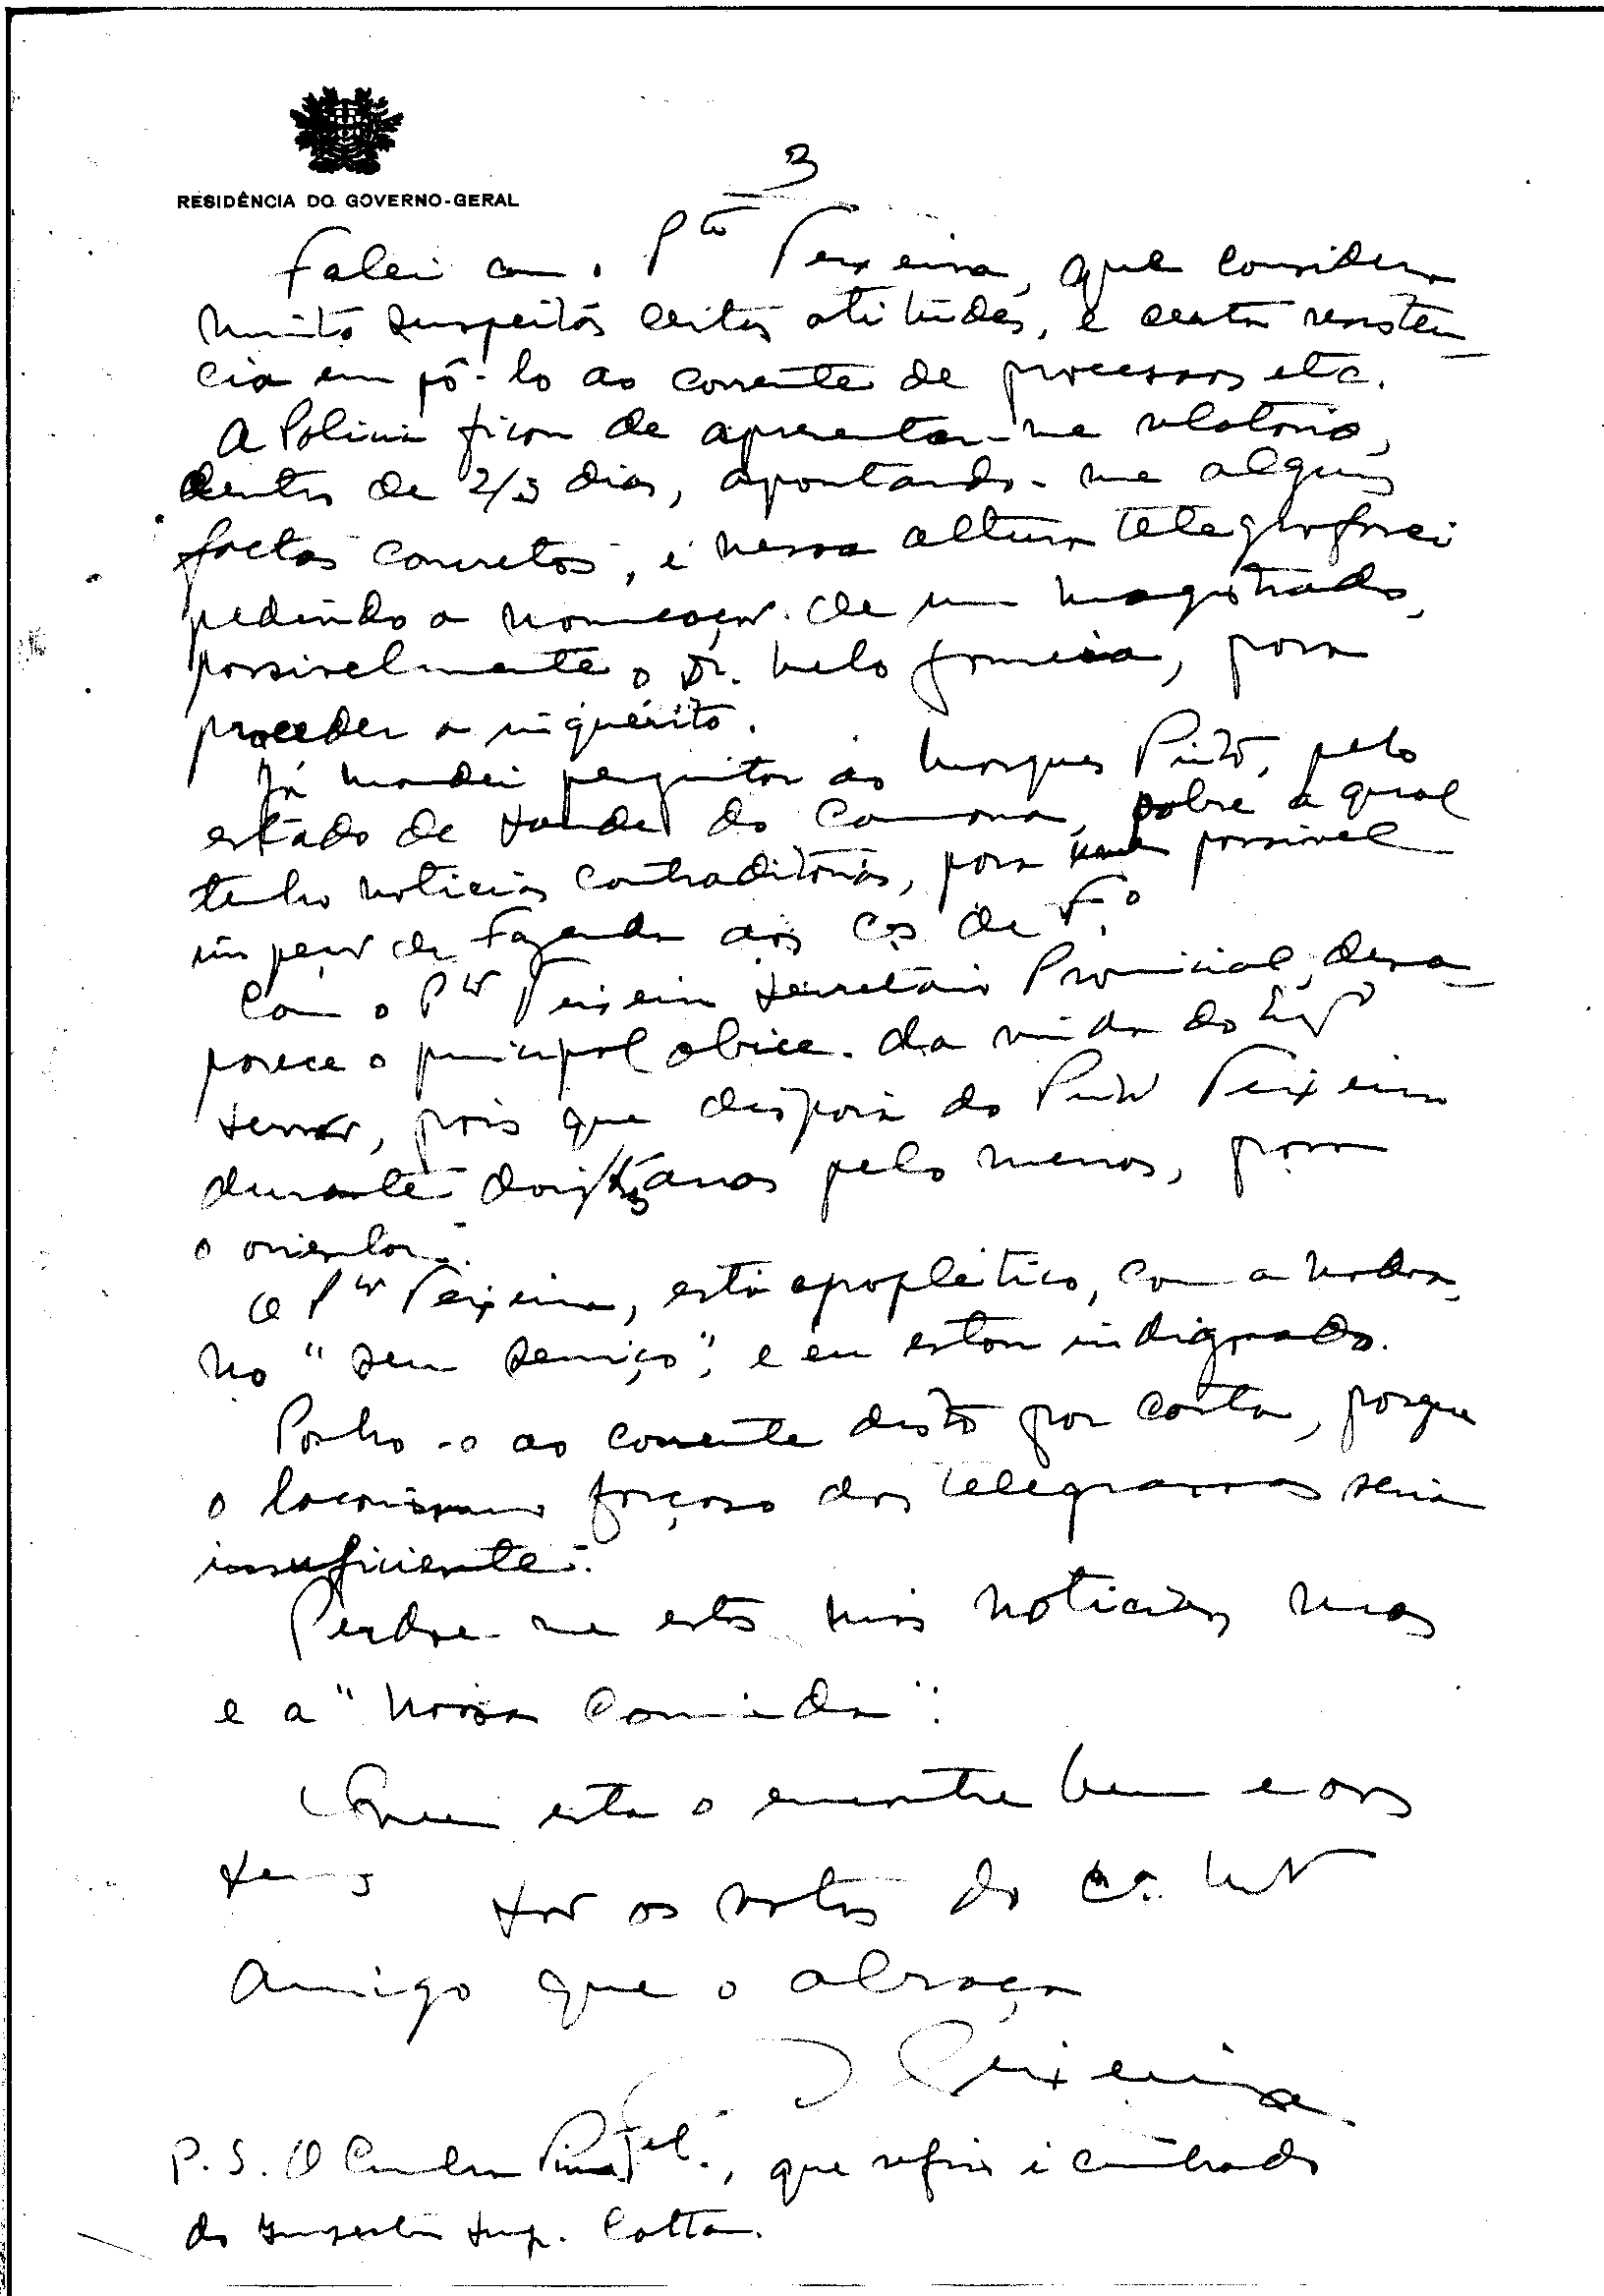 3
RESIDÊNCIA DO GOVERNO-GERAL
Falei com o Pto Teixeira, que considera
muito suspeitas certas atitudes, e certa resistên
cia em pô-lo ao corrente de processos etc.
A Policia ficou de apresentar-me relatorio,
dentro de 2/3 dias, apontando-me alguns
factos concretos, e nessa altura telegrafarei
pedindo a nomeação de um magistrado,
possivelmente o Dr. Melo, para
proceder a inquérito.
Já mandei perguntar ao Marques Pinto, pelo
estado de saude do Camona, sobre a qual
tenho noticias contraditórias, para possivel
inspeção de Fazenda aos Cos de F.º
Com o Pto Teixeira Secretário Provincial, desa-
parece o principal obice da vinda do Engº
, pois que disporia do Pinto Teixeira
durante dois/tres anos pelo menos, para
o orientar.
O Pto Teixeira, está apopletico, com a
no "seu serviço", e eu estou indignado.
Ponho-o ao corrente disto por carta, porque
o laconismo forçoso dos telegramas seria
insuficiente.
Perdoe-me estas más noticias mas
é a "nossa comida".
Que esta o encontre bem e aos
seus são os votos do
amigo que o abraça
Teixeira
P.S. O, que refiro é cunhado
do Inspector Sup. Cotta.